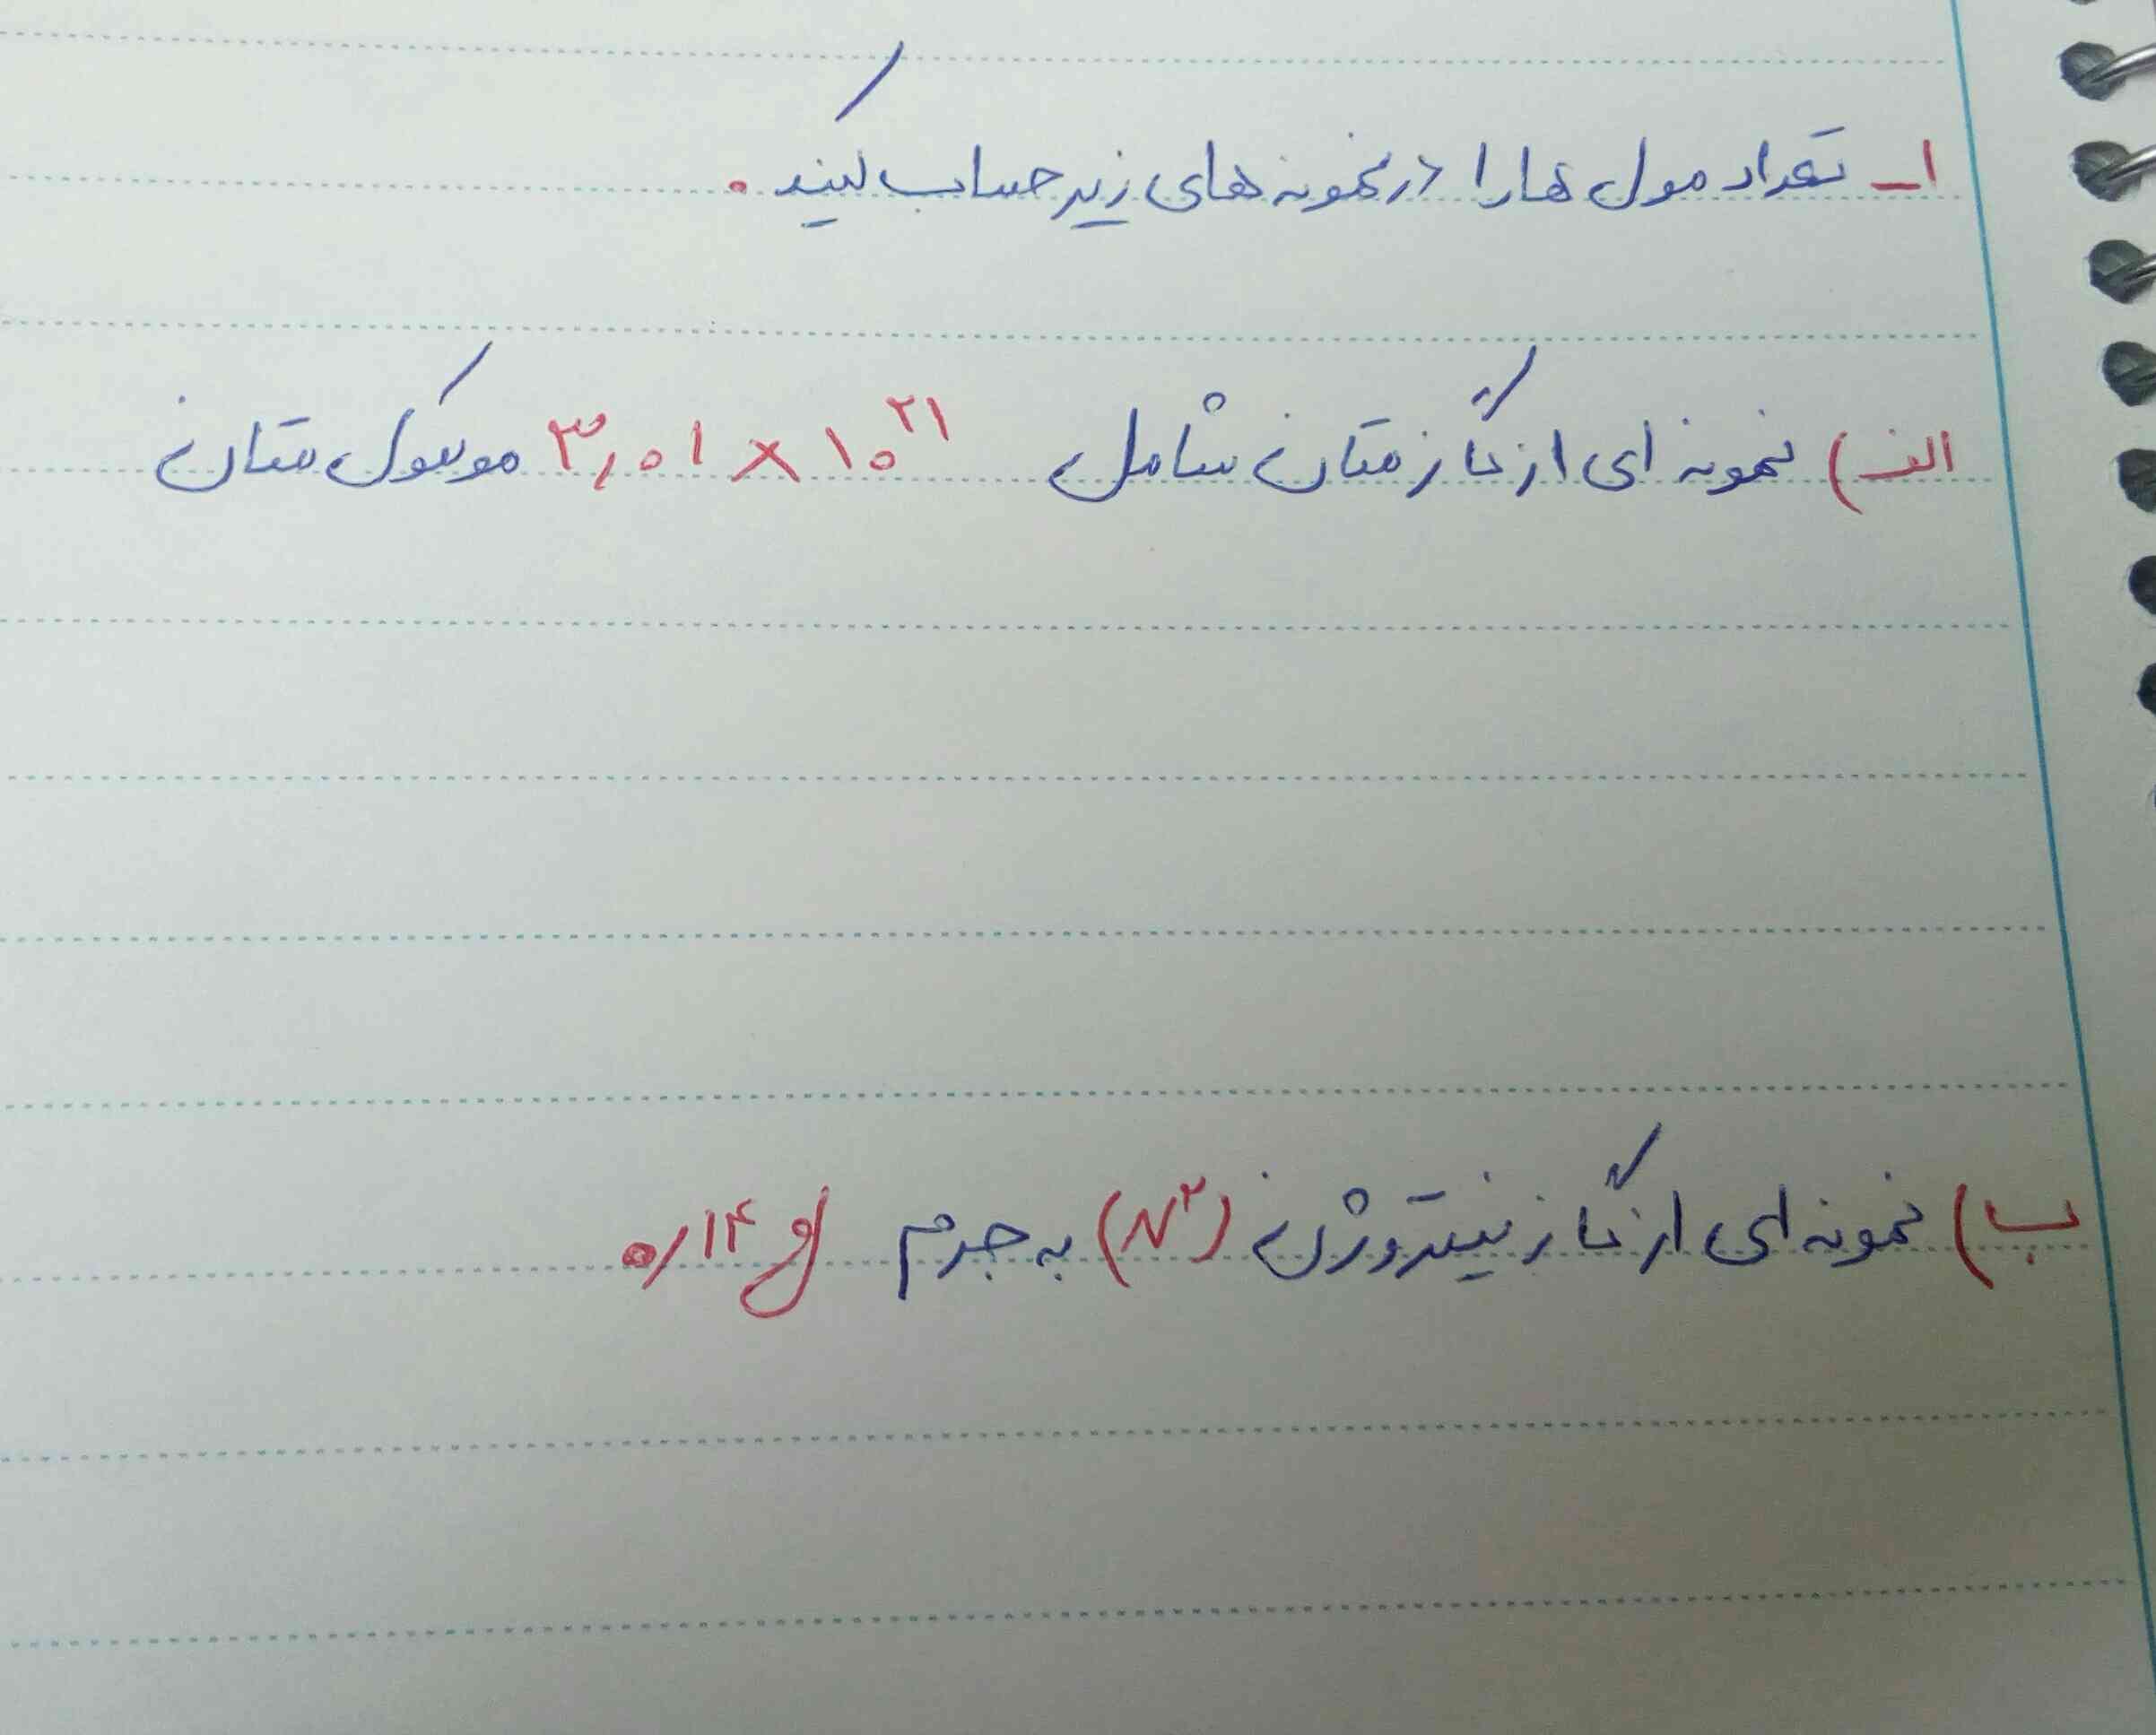 ۱ــ تعداد مول ها را در نمونه های زیر حساب کنید.
الف) نمونه ای از گاز متان شامل ۳٫۰۱ × ۱۰^۲۱ مولکول متان
ب) نمونه ای از گاز نیتروژن (N۲) به جرم ۰/۱۴ g